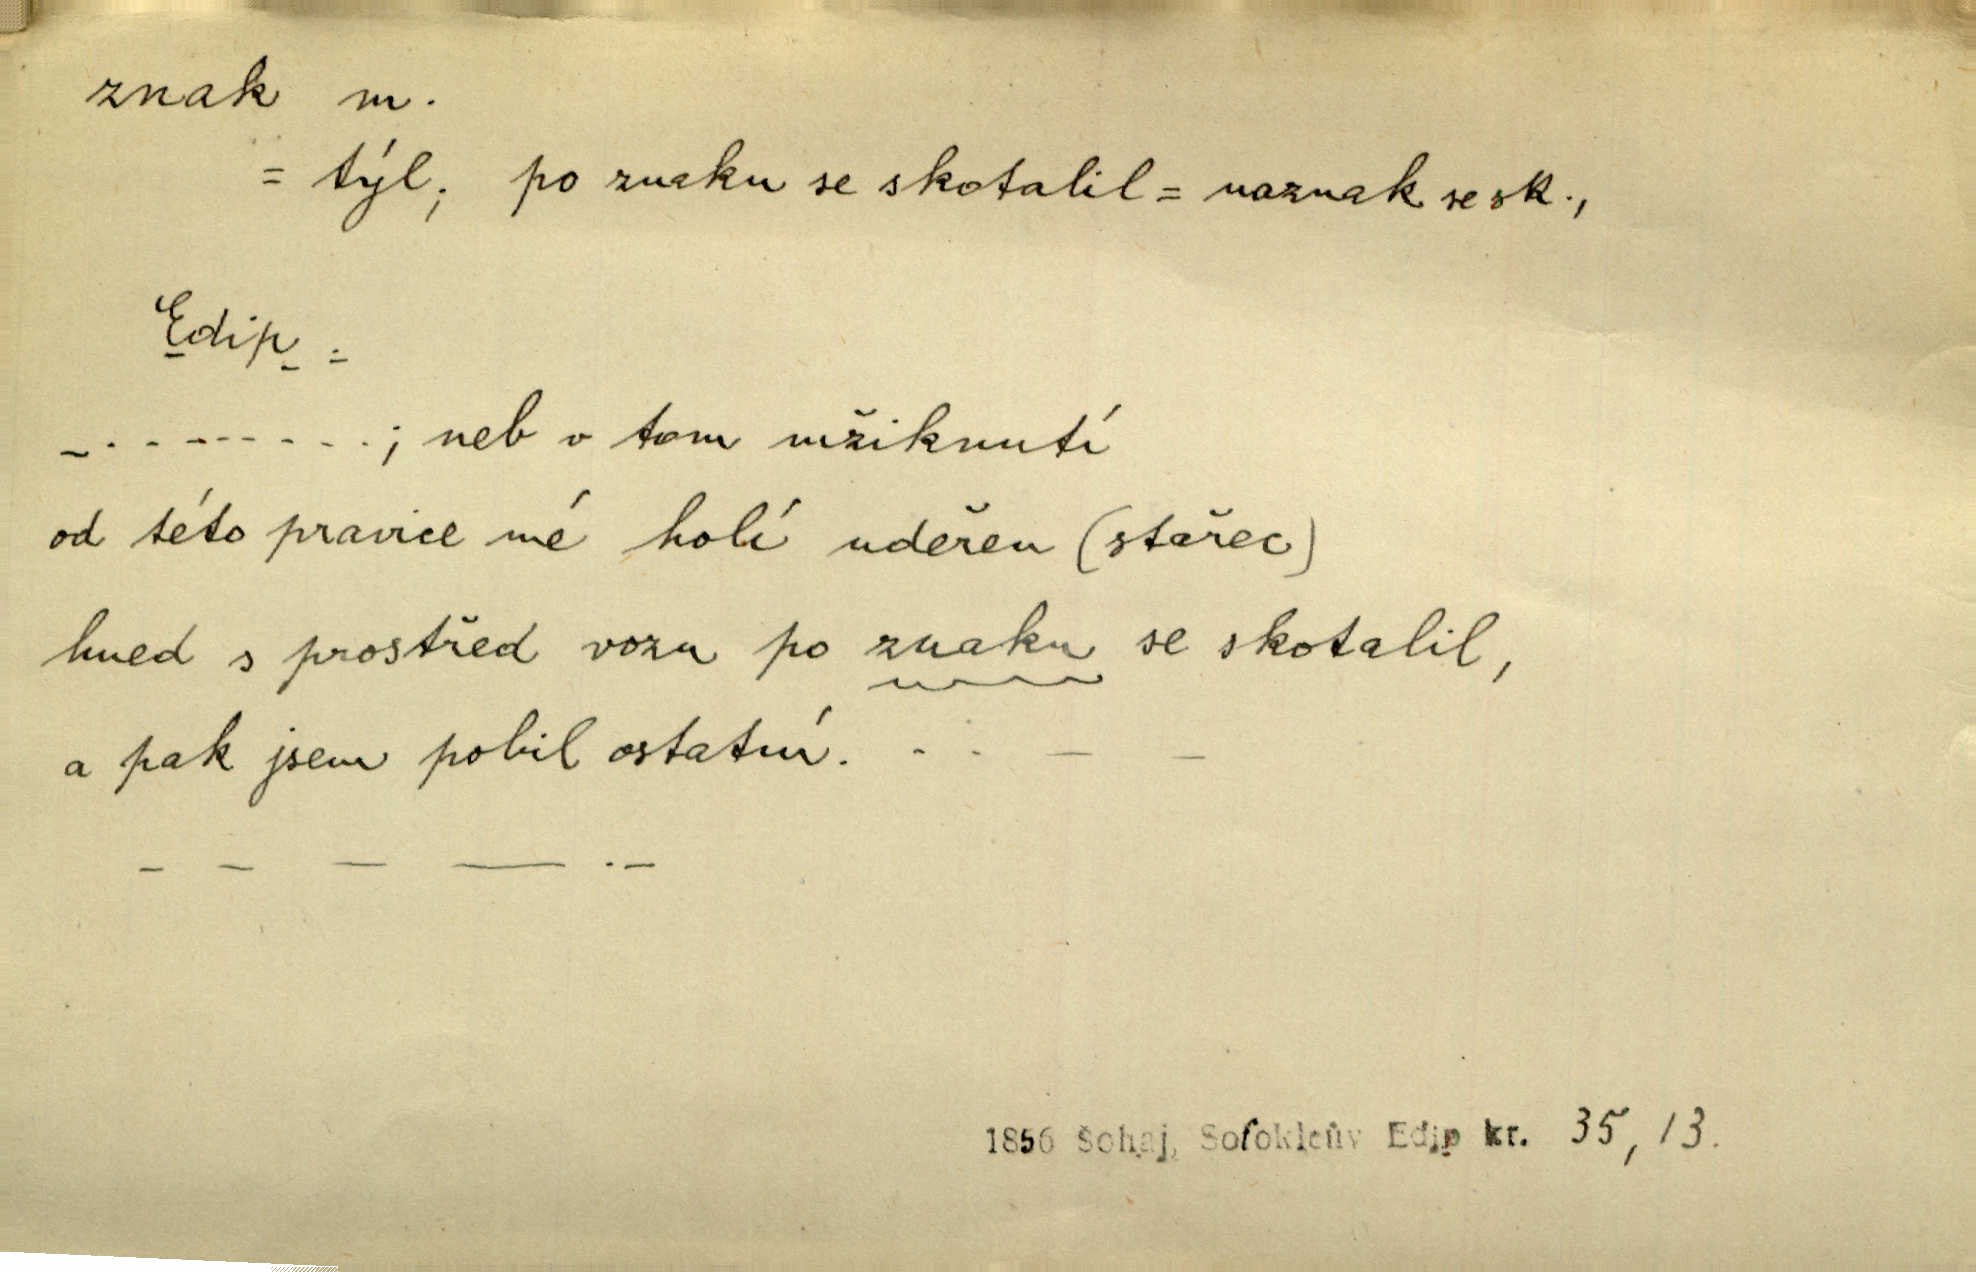 znak m.
= týl; po znaku se skotalil = naznak se sk.,
Edip =
- - - - - - - - - ; neb v tom mžiknutí
od této pravice mé holí udeřen (stařec)
hned s prostřed vozu po znaku se skotalil,
a pak jsem pobil ostatní. - - - -
- - - - - -
1856 Šohaj, Sofokleův Edip kr. 35, 13.